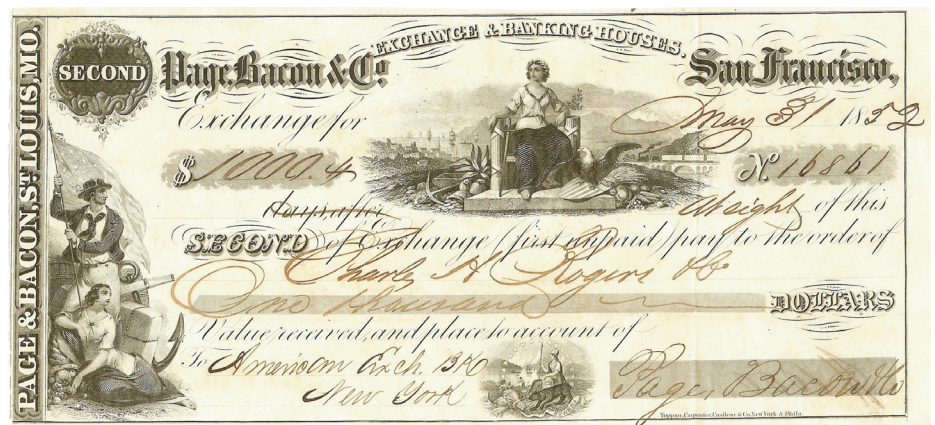 PAGE & BACON, ST. LOUIS, MO.
SECOND
Page, Bacon & Co.
EXCHANGE & BANKING HOUSES.
San Francisco,
Exchange for
May 31 1852
$ 1000.
No. 16861
days after
At sight of this
SECOND of Exchange (first unpaid) pay to the order of
Charles H. Rogers & Co
One thousand DOLLARS
Value received, and place to account of
To American Exch. Bk
New York
Page, Bacon & Co
Toppan, Carpenter, Casilear & Co. New York & Phila.